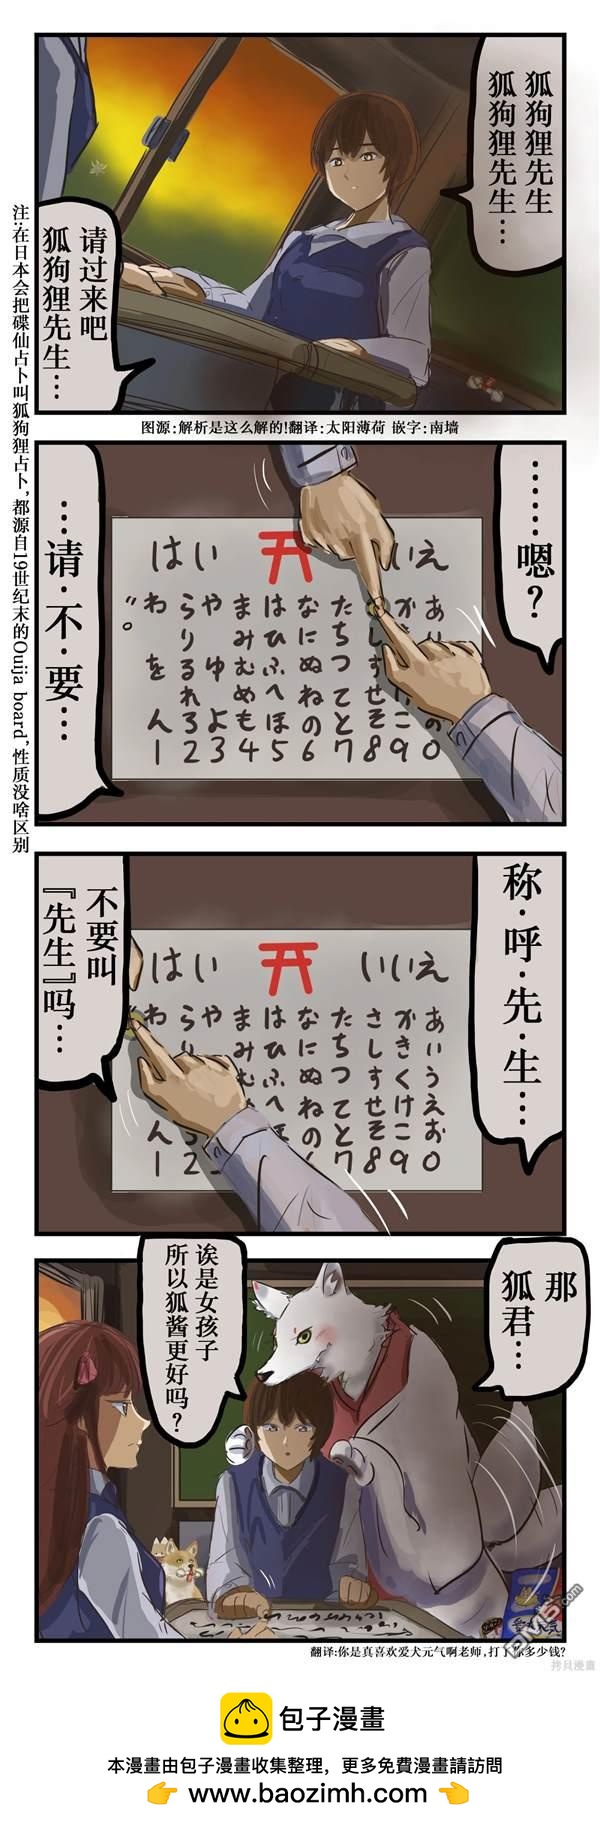 狐狗狸先生
狐狗狸先生…
请过来吧
狐狗狸先生…
注:在日本会把碟仙占卜叫狐狗狸占卜,都源自19世纪末的Ouija board,性质没啥区别
图源:解析是这么解的!翻译:太阳薄荷 嵌字:南墙
………嗯?
…请·不·要…
はい
いえ
あ
の0
か
けこ9
しすせそ8
たちつてと7
なにぬねの6
はひふへほ5
まみむめも4
やゆよ3
らりるれろ2
わをん1
"。
称·呼·先·生…
不要叫
『先生』吗…
はい
いいえ
あいうえお0
かきくけこ9
さしすせそ8
たちつてと7
なにぬねの6
はひふへほ
まみむ
や
らり
2
わ
ん1
那
狐君…
诶是女孩子
所以狐酱更好吗?
翻译:你是真喜欢爱犬元气啊老师,打了你多少钱?
拷贝漫畫
包子漫畫
本漫畫由包子漫畫收集整理，更多免費漫畫請訪問
👉 www.baozimh.com 👈